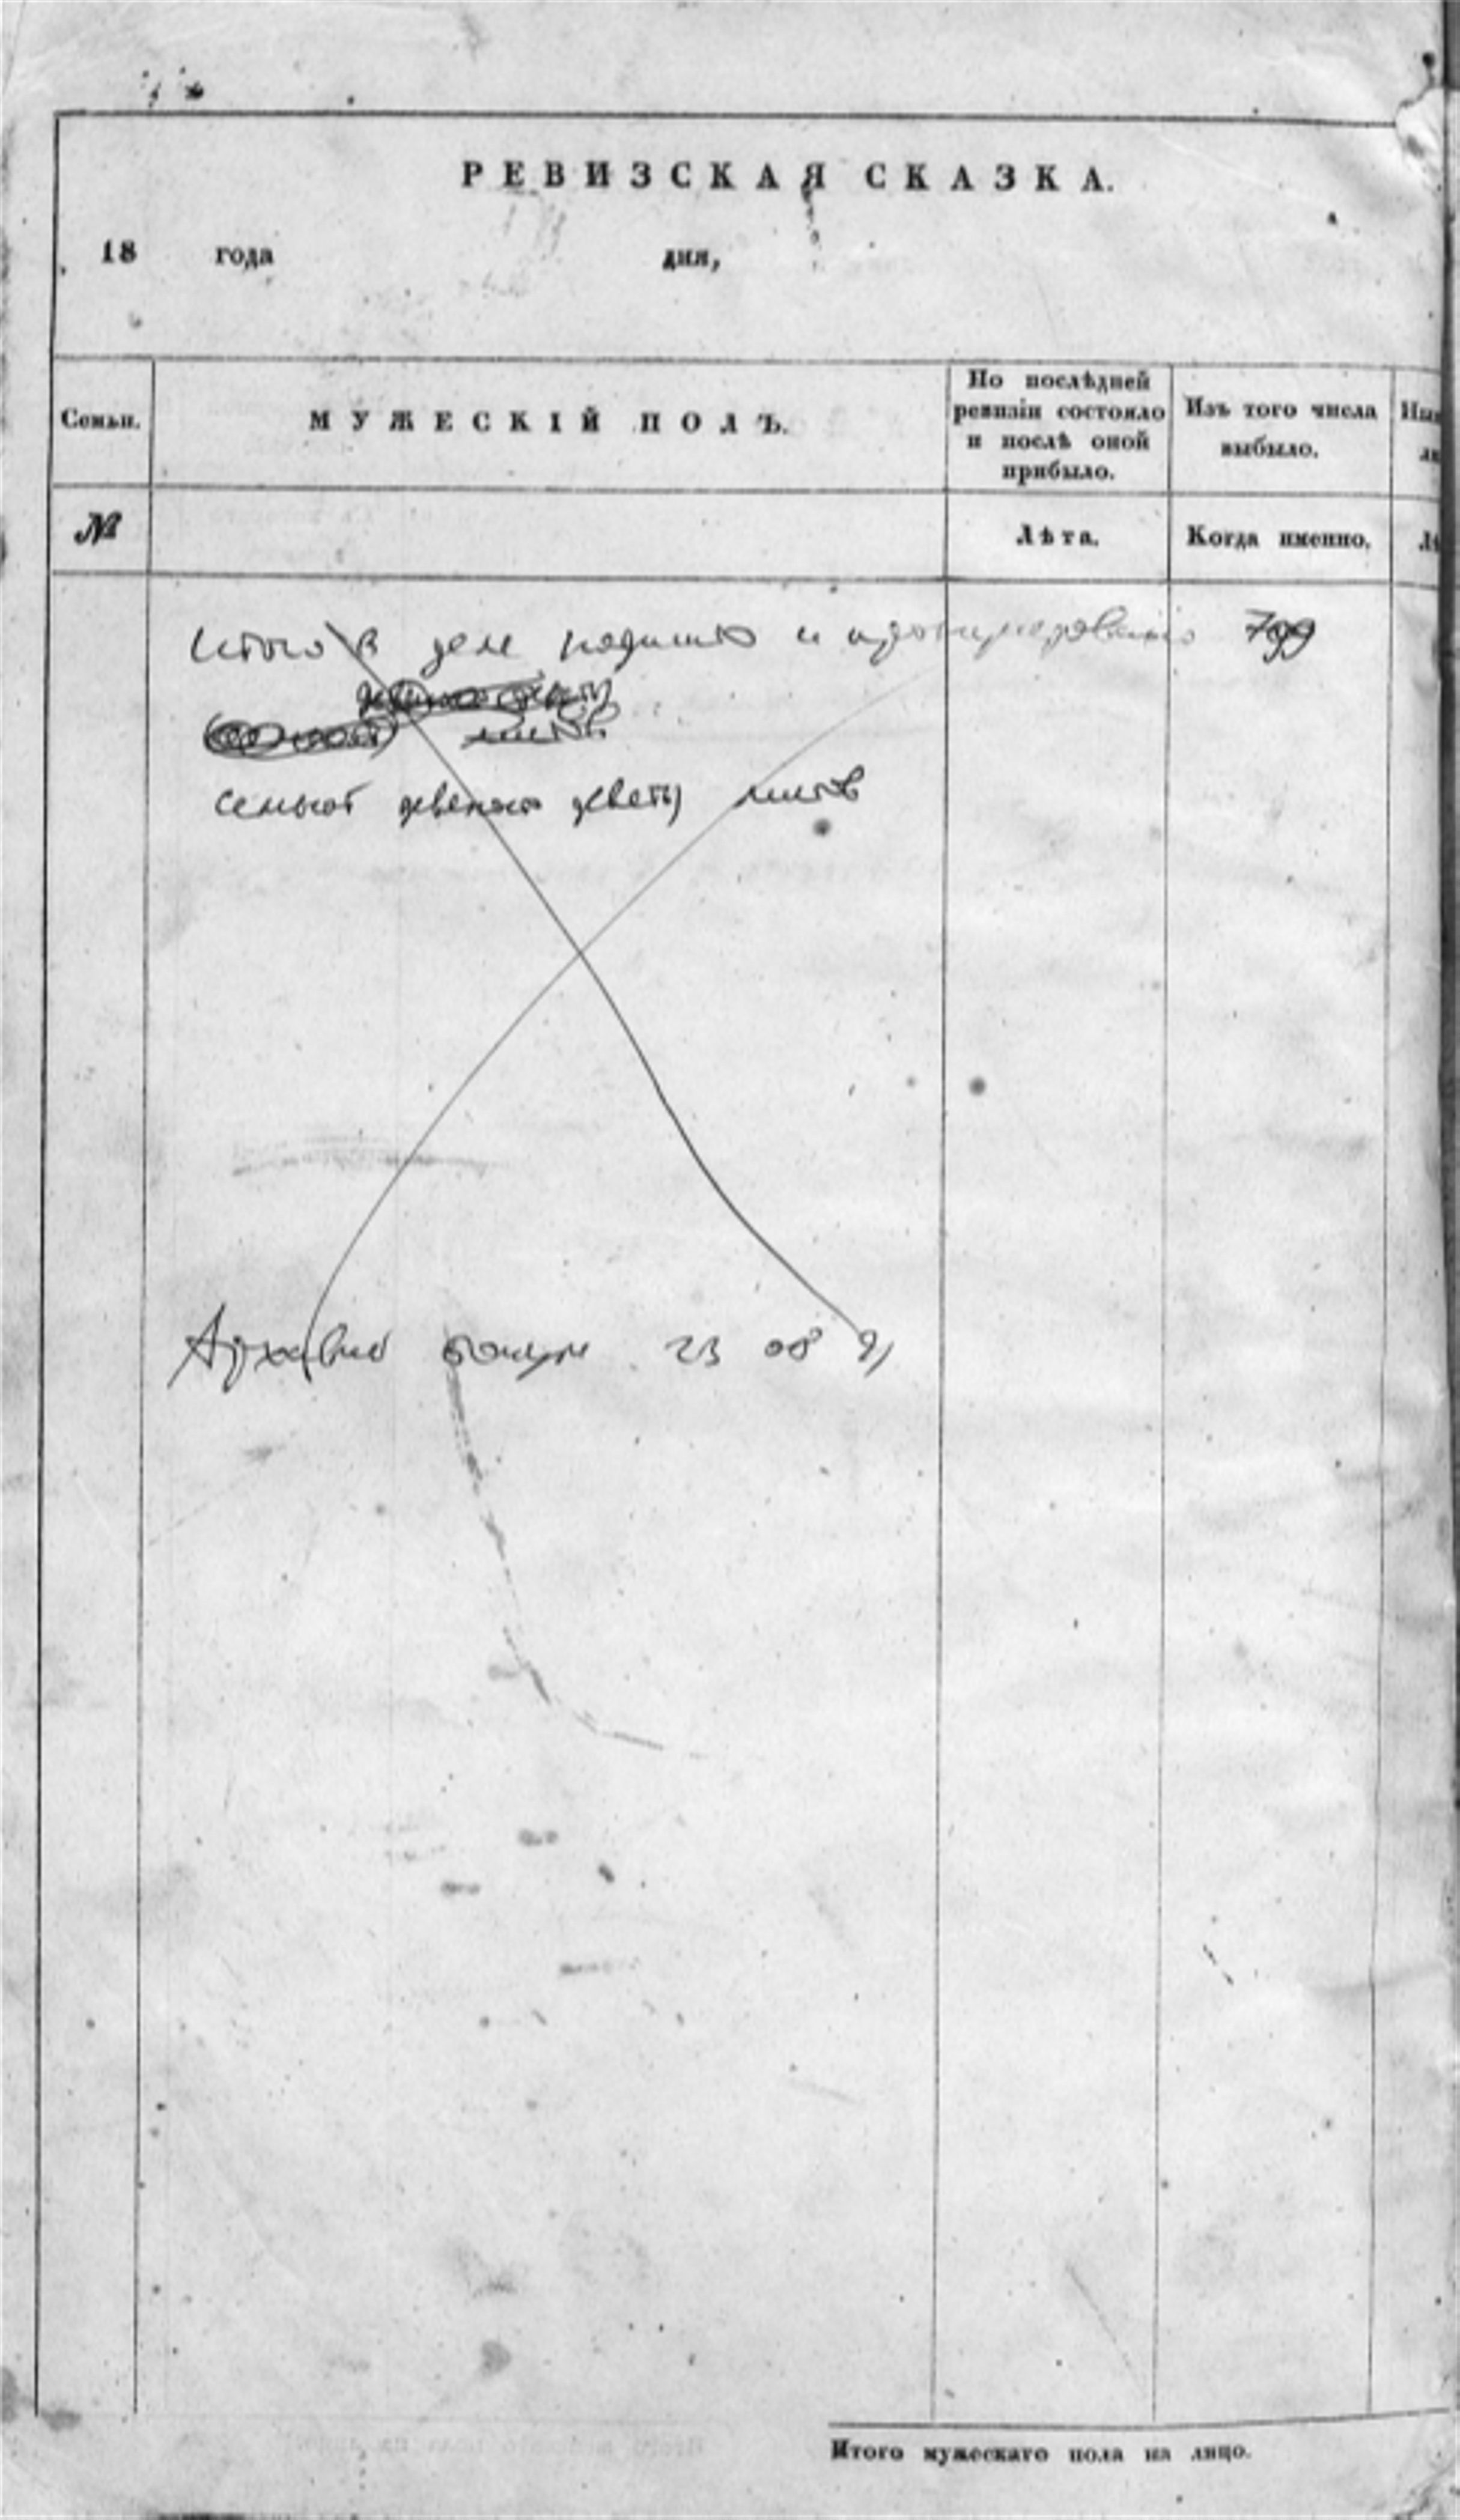 РЕВИЗСКАЯ СКАЗКА.
18 года дня,
Семьи.
МУЖЕСКІЙ ПОЛЪ.
По послѣдней
ревизіи состояло
и послѣ оной
прибыло.
Изъ того числа
выбыло.
№
Лѣта.
Когда именно.
Итого в деле подшито и пронумеровано 799
листов
семьсот девяносто девять листов
23 08 91
Итого мужескаго пола на лицо.